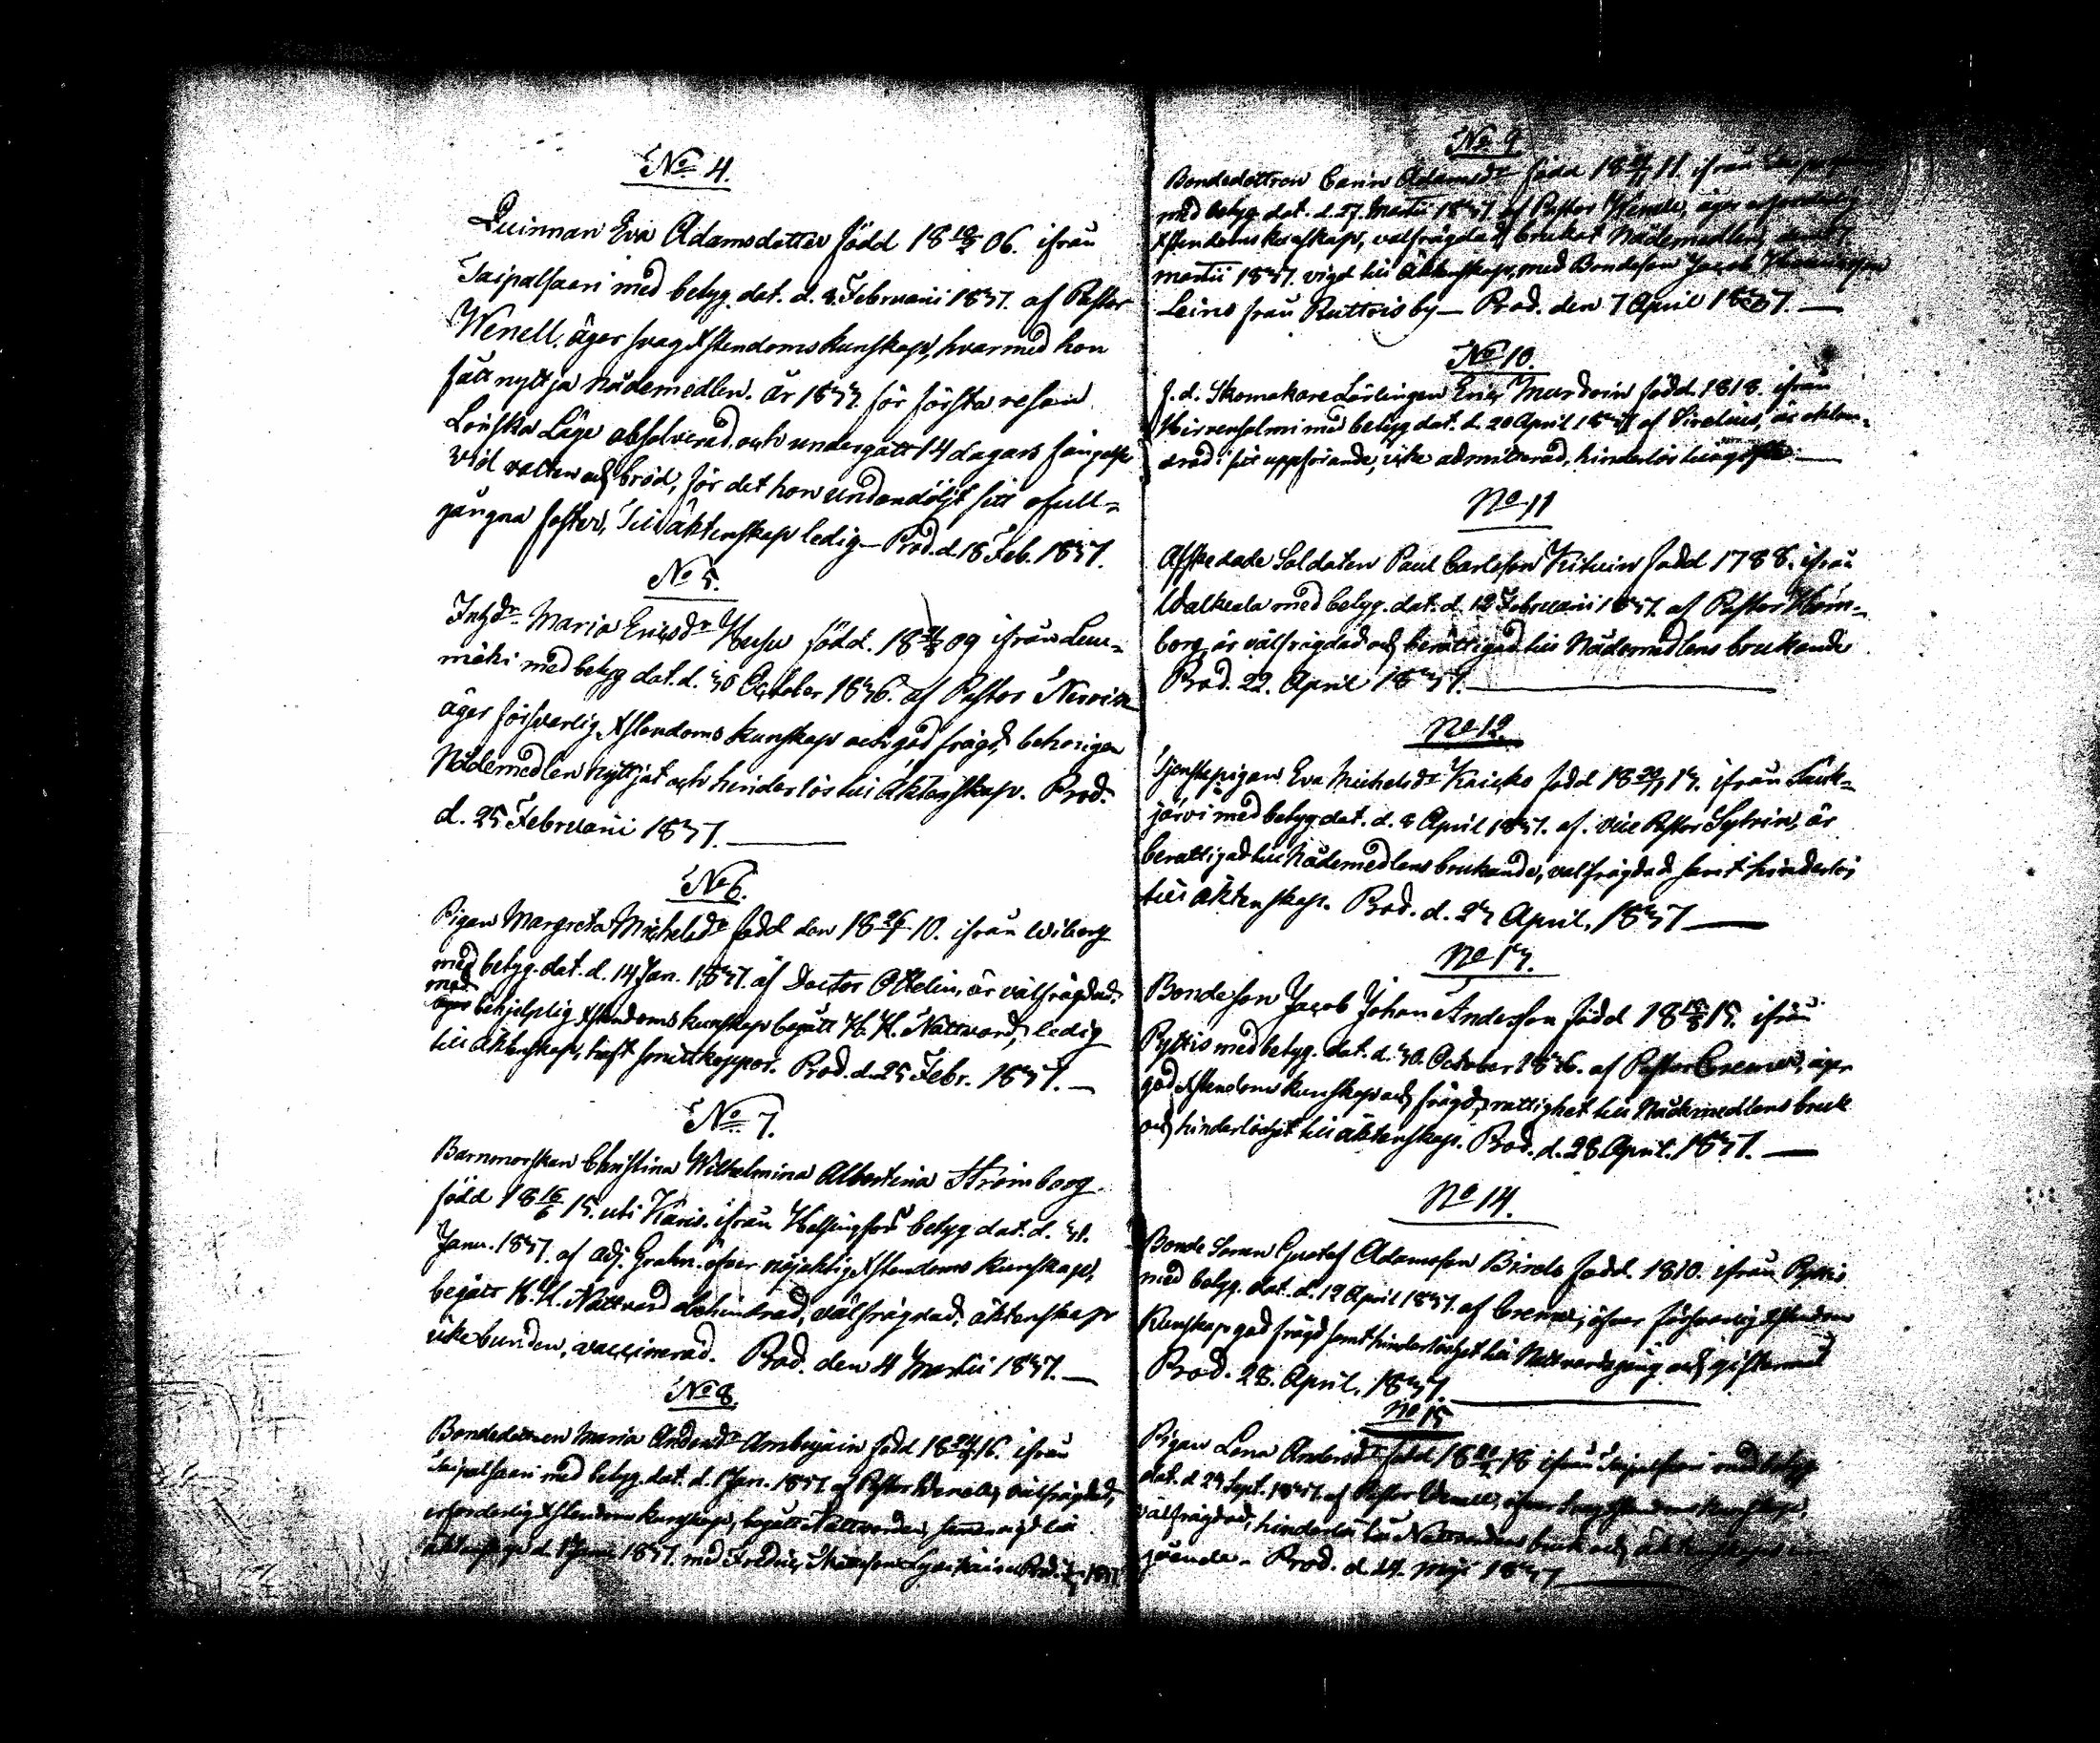 No 4.
Quinnan Eva Adamsdotter född 18 18/3 06. ifrån
Taipalsaari med betyg. dat. d. 2. Februarii 1837. af Pastor
Wenell, äger svag Xstendoms kunskap, hvarmed hon
fått nyttja nådemedlen. är 1833. för första resan
Lönska Läge absolverad. och undergått 14 dagars fängelse
vid vatten och bröd, för det hon undandöljt sitt ofull-
gångna foster, Till äktenskap ledig — Prod. d. 18 Feb. 1837.
No 5.
Inhsdr. Maria Ericsdr född. 18 09 ifrån Lue-
mäki med betyg dat. d. 30 October 1836. af Pastor
äger försvarlig Xstendoms kunskap och god frägd, behörigen
Nådemedlen nyttjat och hinderlös till Äktenskap. Prod.
d. 25 Februarii 1837.
No 6.
Pigan Margreta Michelsdr född den 18 26/7 10. ifrån Wiborg
med betyg. dat. d. 14 Jan. 1837. af Doctor Ottelin, är välfrägdad,
med
behjelplig Xstendoms kunskap begått H. H. Nattvard, ledig
till Äktenskap, haft smittkoppor. Prod. d. 25 Febr. 1837. —
No 7.
Barnmorskan Christina Wilhelmina Albertina Strömborg
född 18 16/6 15. uti Karis. ifrån Helsingfors betyg dat. d. 31.
Janu. 1837. af Adj. Grahn. öfver nöjaktig Xstendoms kunskap,
begått H. H. Nattvard obehindrad, välfrägdad, äktenskap
icke bunden, vaccinerad. Prod. den 4 Martii 1837. —
No 8.
Bondedottren Maria Andersdr Ambrjäin född 18 24/9 16. ifrån
Taipalsaari med betyg. dat. d. 1 Jan. 1837. af Pastor Wenell, välfrägdad,
erforderlig Xstendoms kunskap, begått Nattvarden, samt vigd till
äktenskap d. 1 1837. med Fredric Prod. 1837.
No 9.
Bondedottren Carin Adamsdr född 18 11. ifrån
med betyg. dat. d. 27. Martii 1837. af Pastor Wenell, äger erforderlig
Xstendoms kunskap, välfrägdad, brukat Nådemedlen,
martii 1837. vigd till Äktenskap, med Bondeson Jacob
Leino från Ruttois by — Prod. den 7 April 1837. —
No 10.
f. d. Skomakare Lärlingen Eric Murdoin född. 1818. ifrån
Hirvensalmi med betyg dat. d. 20 April 1837 af Sirelius, är oklan-
drad i sitt uppförande, icke admitterad, hinderlös till —
No 11
Afskedade Soldaten Paul Carlsson född 1788. ifrån
Walkeala med betyg. dat. d. 12 Februarii 1837. af Pastor Horn-
borg, är välfrägdad och berättigad till Nådemedlens brukande
Prod. 22. April 1837.
No 12.
Tjenstepigan Eva Michelsdr Kaicko född 18 13. ifrån Säck-
järvi med betyg dat. d. 8 April 1837. af. vice Pastor Sylvin, är
berättigad till Nådemedlens brukande, välfrägdad samt hinderlös
till äktenskap. Prod. d. 23 April, 1837 —
No 13.
Bondeson Jacob Johan Andersson född 18 15. ifrån
Pyttis med betyg. dat. d. 30. October 1836. af Pastor Cremer, äger
god Xstendoms kunskap och frägd, rättighet till Nådemedlens bruk
och hinderlöshet till äktenskap. Prod. d. 28 April. 1837. —
No 14.
Bonde Sonen Gustaf Adamsson född. 1810. ifrån Pyttis
med betyg. dat. d. 12 April 1837. af Cremer, öfver försvarlig Xstendoms
Kunskap god frägd samt hinderlöshet till Nattvardsgång och giftermål
Prod. 28. April, 1837.
No 15
Pigan Lena Andersdr född 18 18 ifrån Taipalsaari med betyg
dat. d. 24 Sept. 1837. af Pastor Wenell, öfver svag Xstendoms kunskap,
välfrägdad, hinderlös till Nattvardens bruk och äktenskaps in-
gående. Prod. d. 14. maji 1837